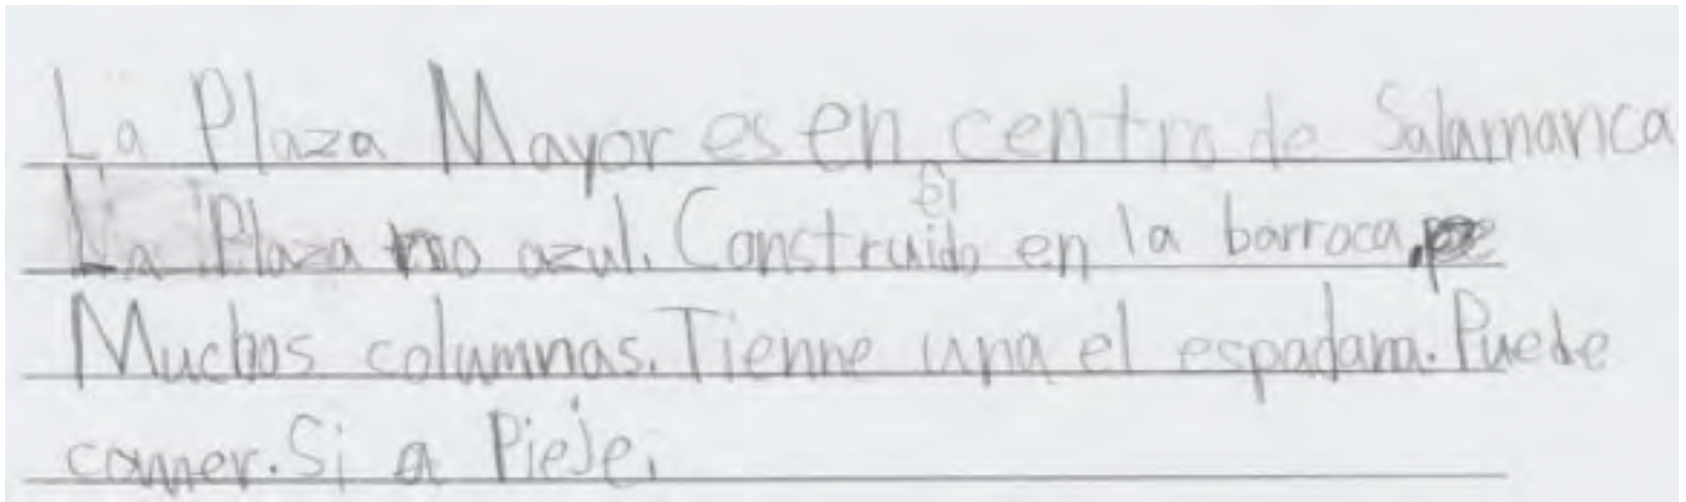 La Plaza Mayor es en centro de Salamanca
La Plaza no azul. Construido el en la barroca,
Muchos columnas. Tienne una el espadana. Puede
comer. Si a Pieje.